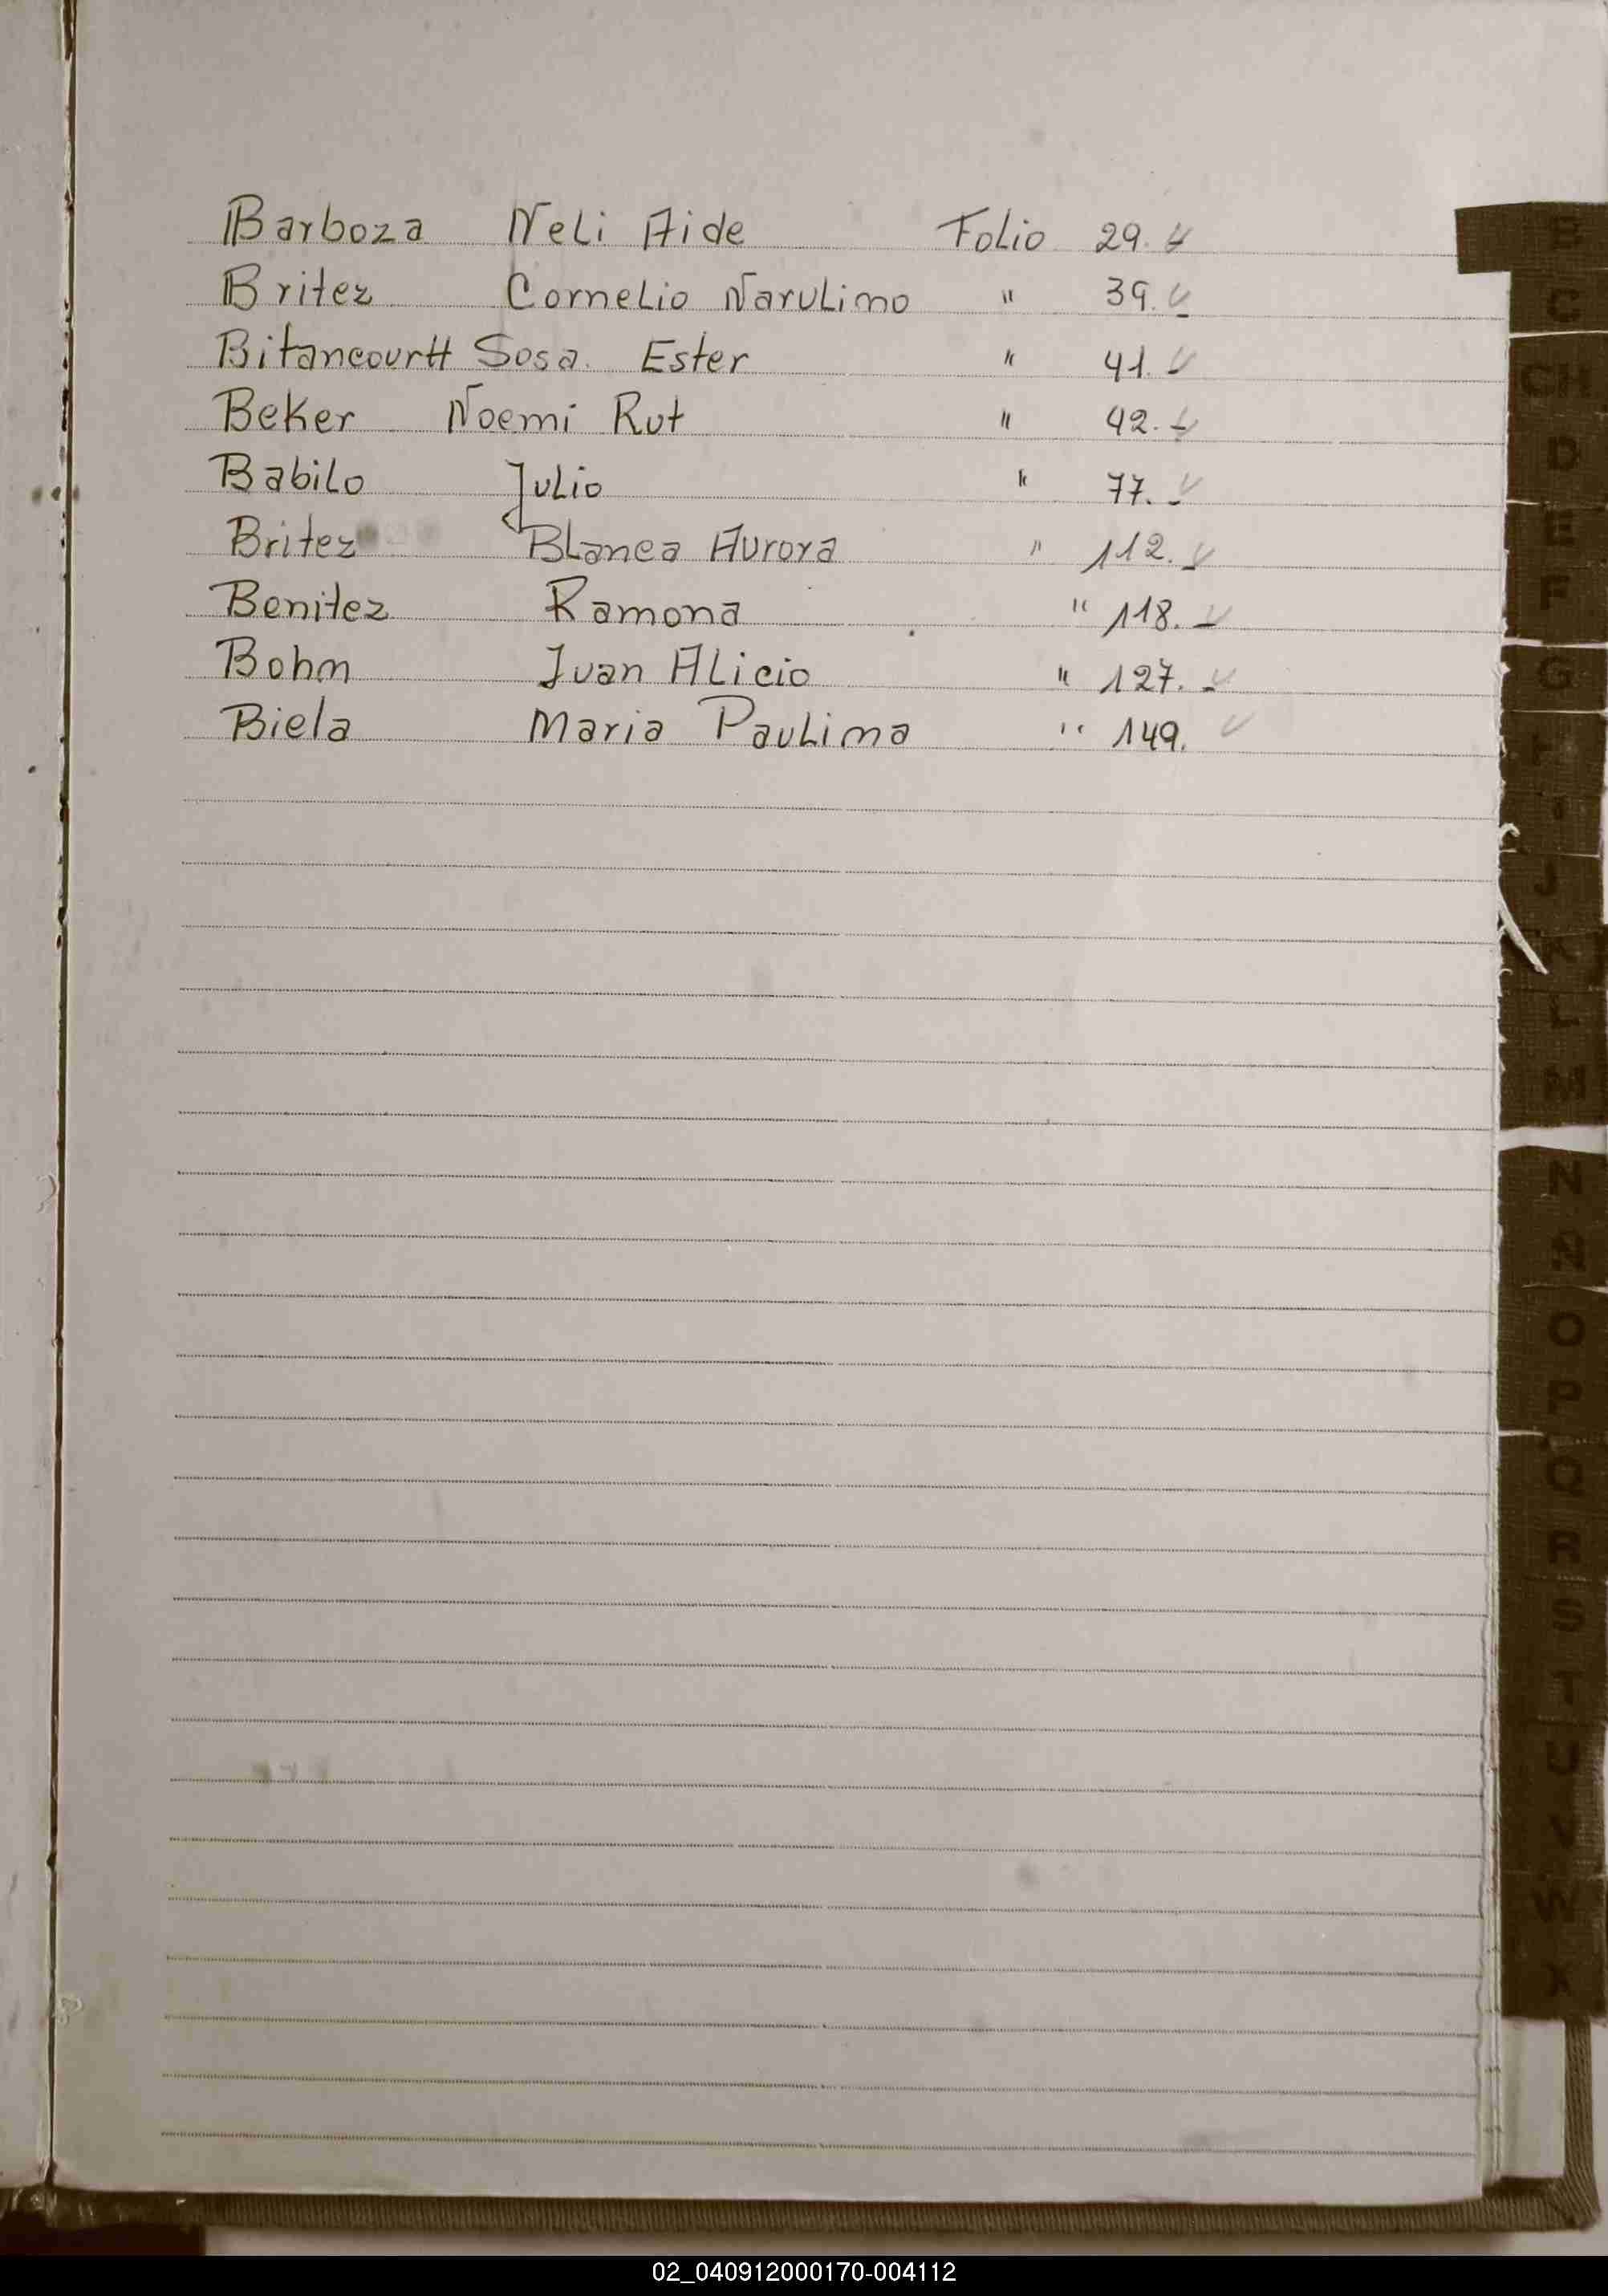 Barboza Neli Aide Folio 29.
Britez Cornelio Narulimo " 39.
Bitancourtt Sosa. Ester " 41.
Beker Noemi Rut " 42.
Babilo Julio " 77.
Britez Blanca Aurora " 112.
Benitez Ramona " 118.
Bohm Juan Alicio " 127.
Biela Maria Paulima " 149.
B
C
CH
D
E
F
G
H
I
J
K
L
M
N
Ñ
O
P
Q
R
S
T
U
V
W
X
02_040912000170-004112